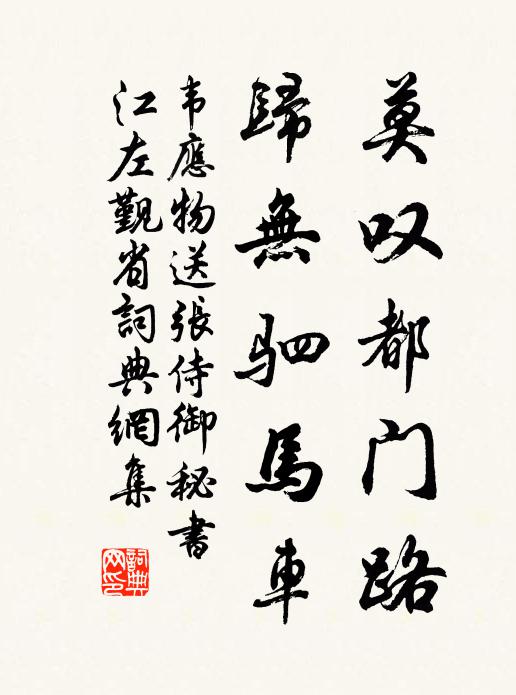 莫叹都门路
歸無駟馬車
韦應物送張侍御秘書
江左觐省詞典網集
詞典网印